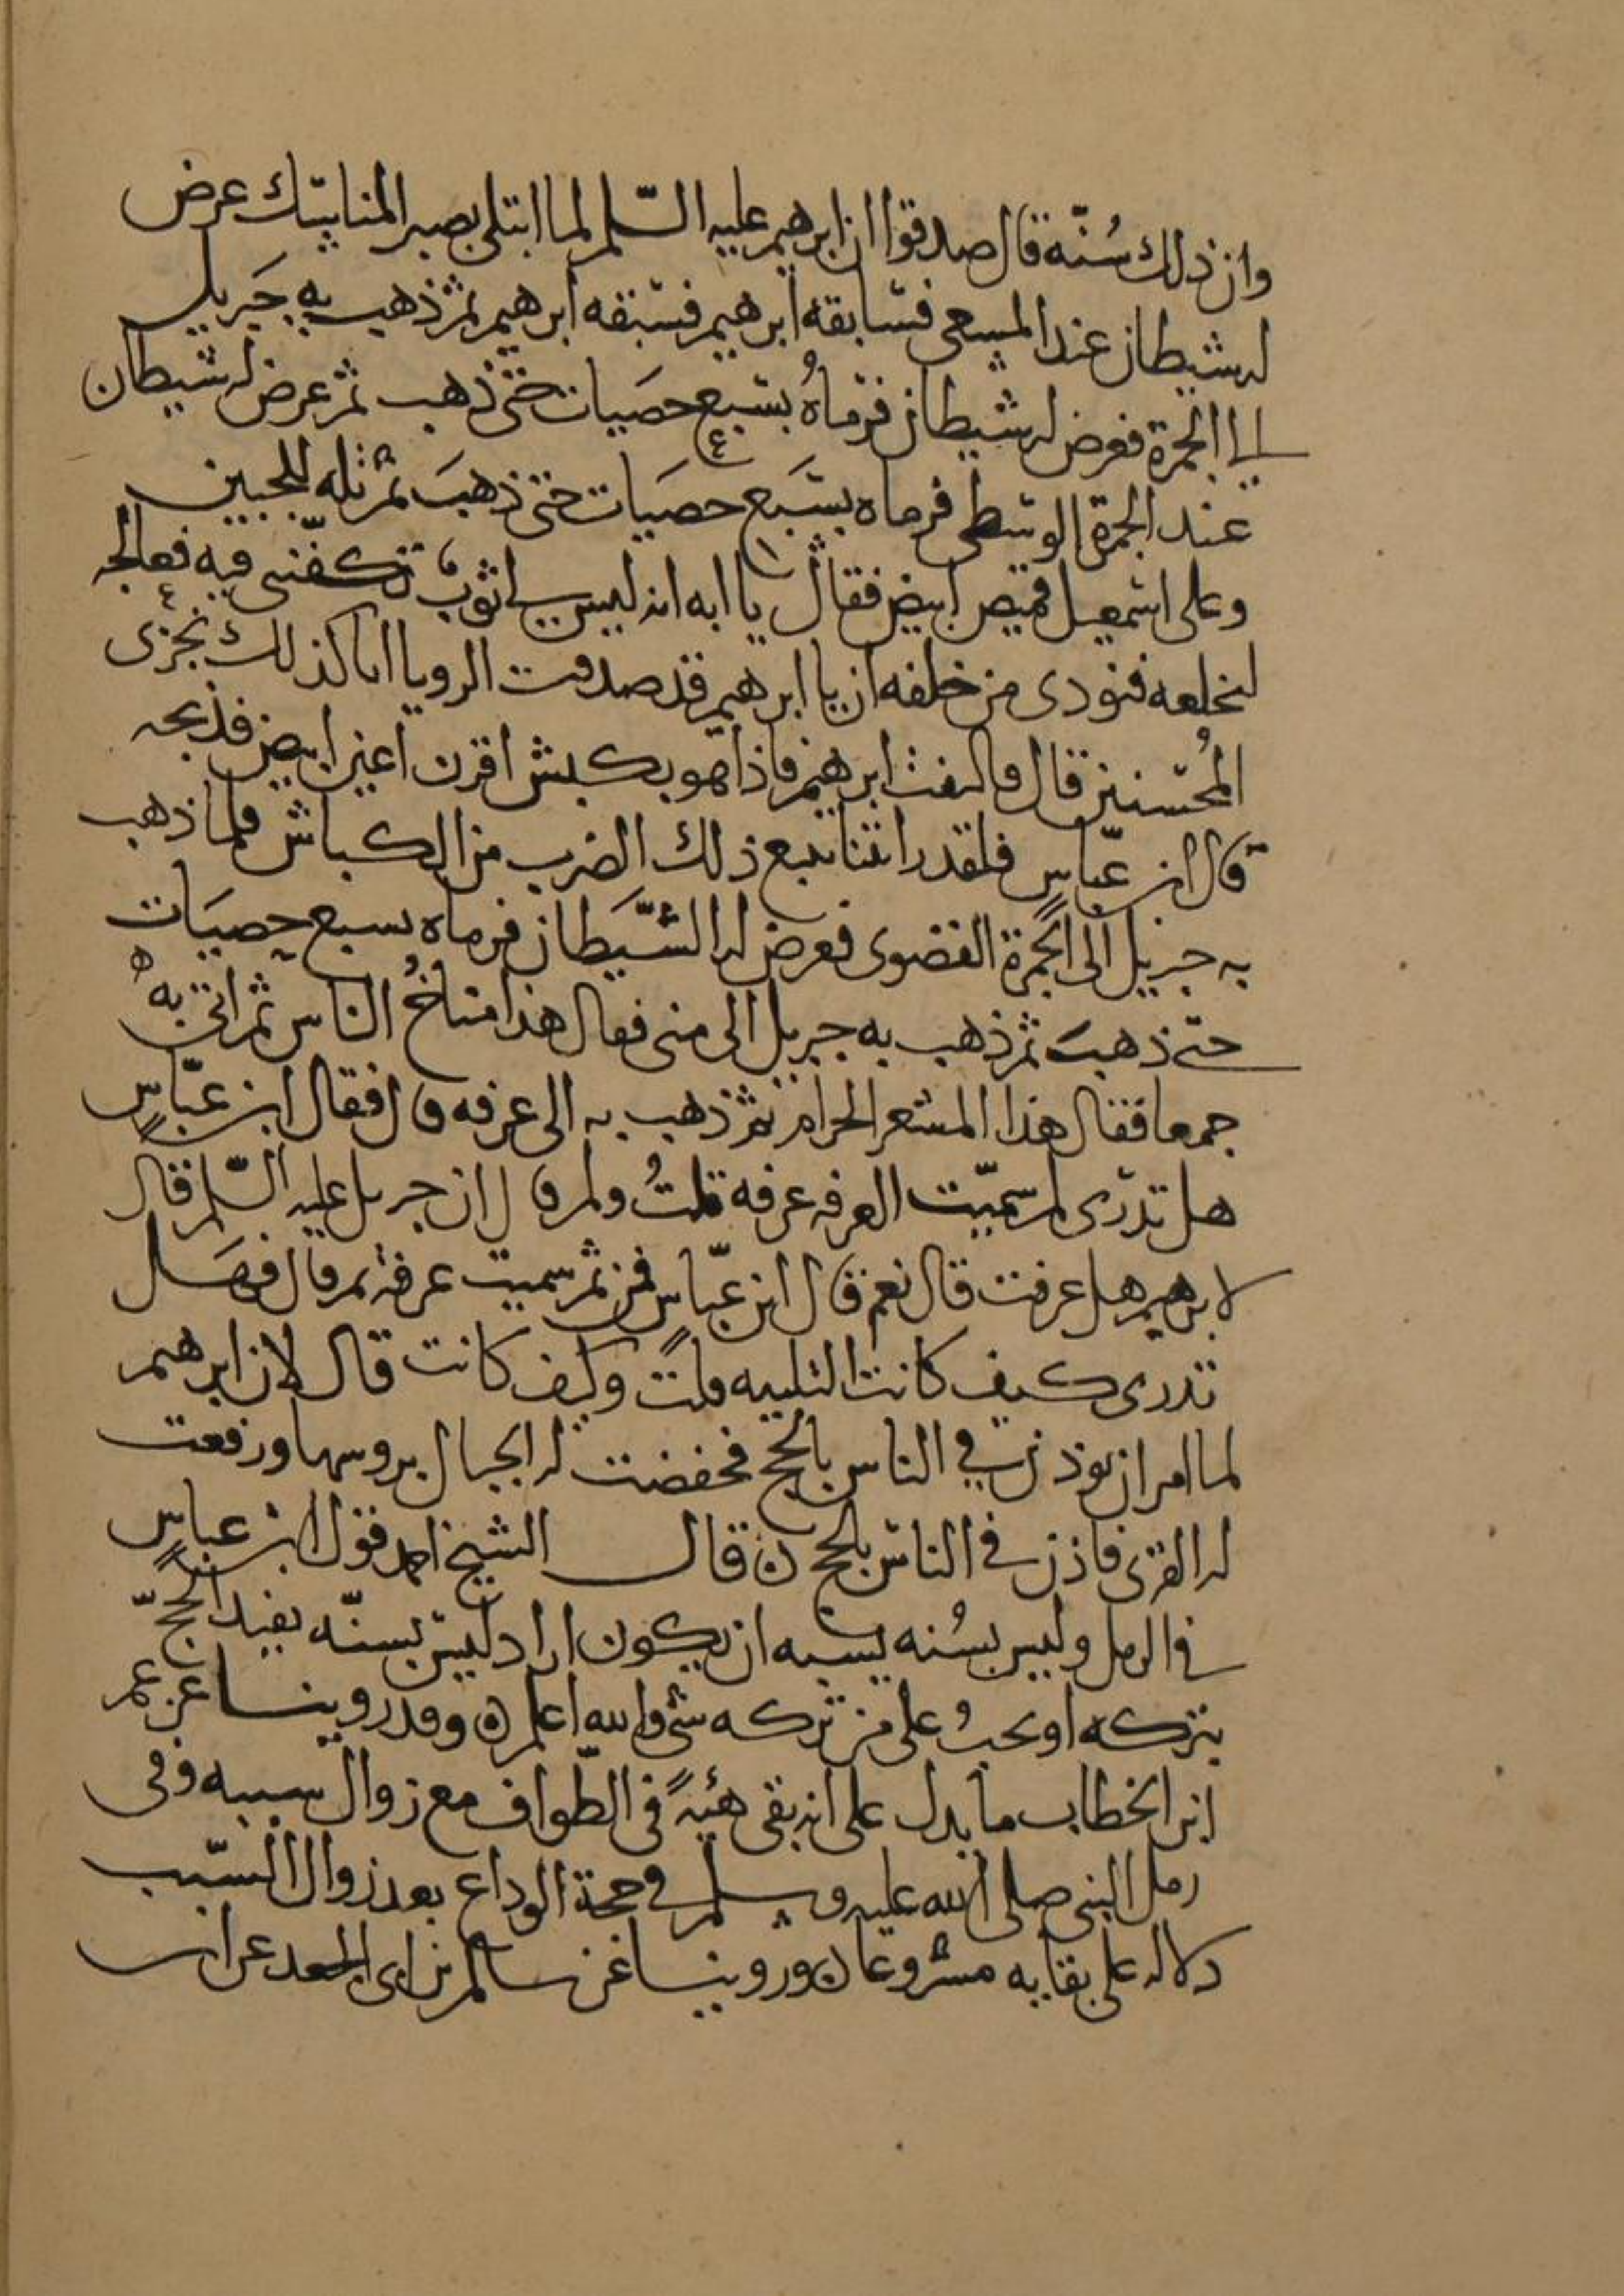 وان ذلك سُنّه قال صدقوا ان ابرهيم عليه السّلم لما ابتلى بصبر المناسك عرض
له شيطان عند المسعى فسابقه ابرهيم فسبقه ابرهيم ثم ذهب به جَبريل
الى الجمرة فعرض له شيطان فرماهُ بسبع حصَيات حتى ذهب ثم عرض له شيطان
عند الجمرة الوسطى فرماه بسَبع حصَيات حتى ذهبَ ثم تله للجبين
وعلى اسمعيل قميص ابيض فقال يا ابه انه ليس لي ثوب تكفّنني فيه فعالجه
لنخلعه فنودى من خلفه ان يا ابرهيم قد صدقت الرويا انا كذلك نجزى
المُحسنين قال فالتفت ابرهيم فاذا هو بكبش اقرن اعين ابيض فذبحه
قال ابن عبّاس فلقد رايتنا نتبع ذلك الضرب من الكباش فلما ذهب
به جبريل الى الجمرة القصوى فعرض له الشّيَطان فرماه بسبع حصيَات
حتى ذهبَ ثم ذهب به جبريل الى منى فقال هذا مناخُ الناس ثم اتى به
جمعا فقال هذا المشعر الحرام ثم ذهب به الى عرفه قال فقال ابن عبّاس
هل تدرى لم سمّيت العرفه عرفه قلتُ ولم قال ان جبريل عليه السّلم قال
لابرهيم هل عرفت قال نعم قال ابن عبّاس فمن ثم سميت عرفة ثم قال فهَل
تدرى كيف كانت التلبيه قلت وكيف كانت قال لان ابرهيم
لما امر ان يوذن في الناس بالحج فخفضت له الجبال بروسها ورفعت
له القرى فاذن في الناس بالحج ن قال الشيخ احمد فقول ابن عباس
في الرمل وليس بسُنه يشبه ان يكون اراد ليس بسنّه يفيد الحجّ
بتركه او يجبُ على من تركه شى والله اعلم ن وقد روينا عن عمر
ابن الخطاب ما يدل على انه بقى هئيةً فى الطّواف مع زوال سببه وفى
رمل النبى صلى الله عليه وسلم في حجة الوداع بعد زوال السّبب
دلاله على بقايه مشروعا ن وروينا عن سالم بن ابى الجعد عن ابن